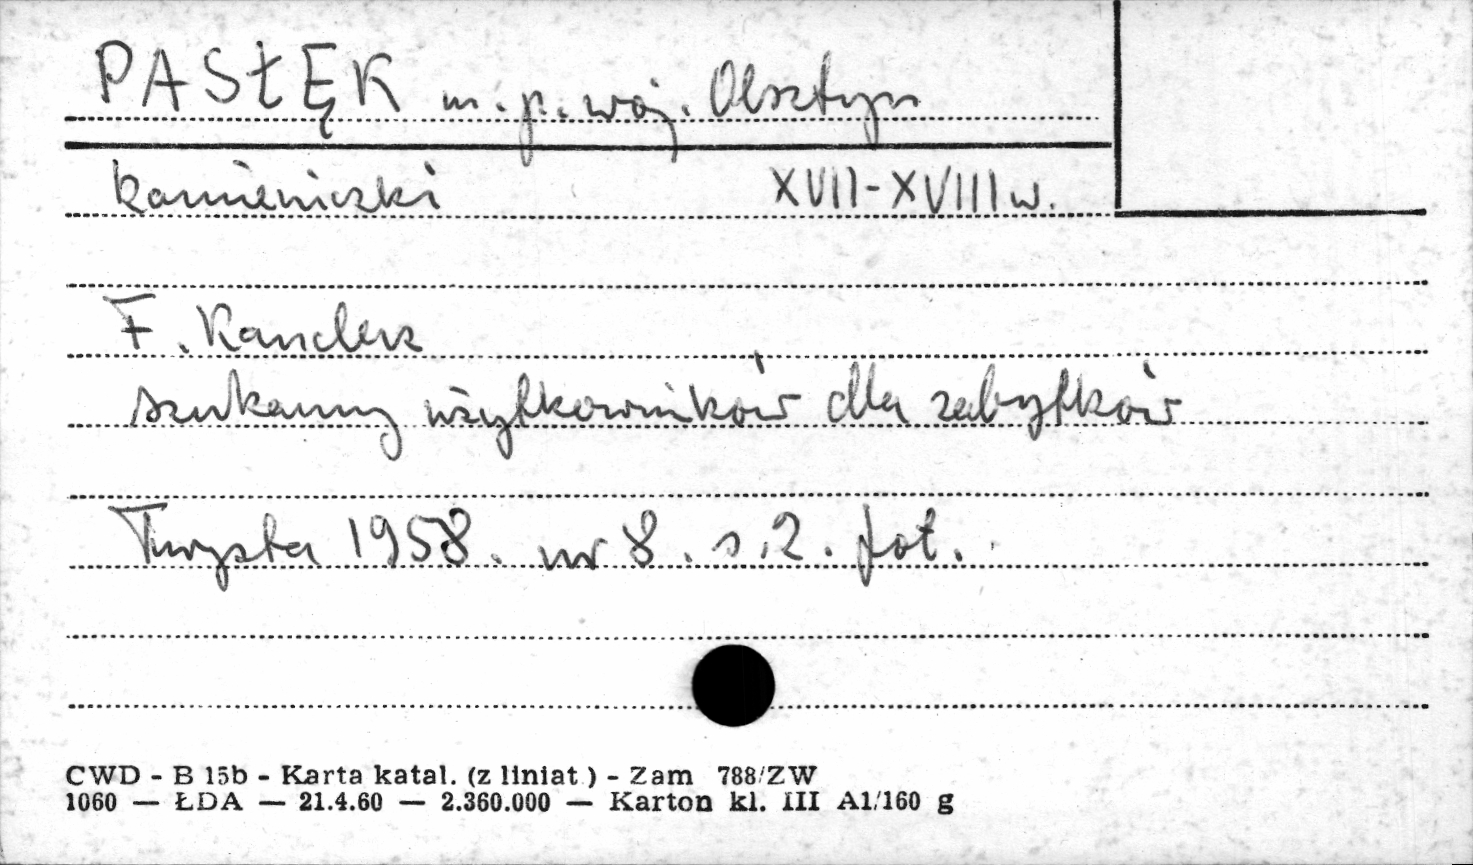 PASŁĘK m. p. woj. Olsztyn
kamieniczki XVII-XVIII w.
F. Kandera
szukamy użytkowników dla zabytków
Turysta 1958. nr 8. s. 2. fot.
CWD - B 15b - Karta katal. (z liniat.) - Zam 788/ZW
1060 — ŁDA — 21.4.60 — 2.360.000 — Karton kl. III A1/160 g